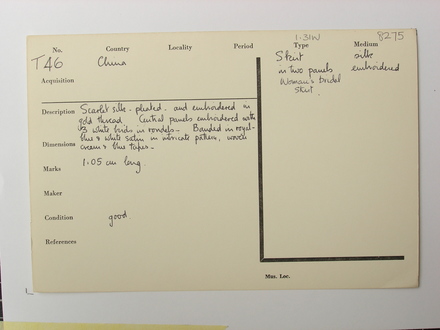 1-31W 8275
No. Country Locality Period Type Medium
T46 China Skirt silk
in two panels embroidered
Acquisition Woman's bridal
skirt.
Description Scarlet silk - pleated - and embroidered in
gold thread. Central panels embroidered with
white birds in rondels - Banded in royal-
blue & white satin in intricate pattern, woven
Dimensions cream & blue tapes -
Marks 1.05 cm long.
Maker
Condition good
References
Mus. Loc.